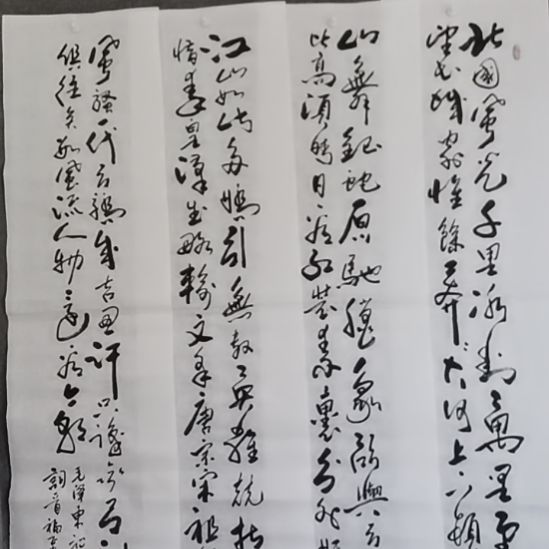 北国风光千里冰封万里雪
望长城内外惟余莽莽大河上下顿
山舞银蛇原驰腊象欲与天
比高须晴日看红装素裹分外
江山如此多娇引无数英雄竞折
惜秦皇汉武略输文采唐宗宋祖
风骚一代天骄成吉思汗只识弯弓
俱往矣数风流人物还看今朝
毛泽东
词